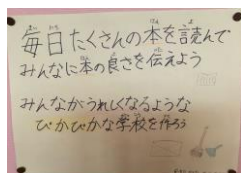 毎日たくさんの本を読んで
みんなに本の良さを伝えよう
みんながうれしくなるような
ぴかぴかな学校を作ろう